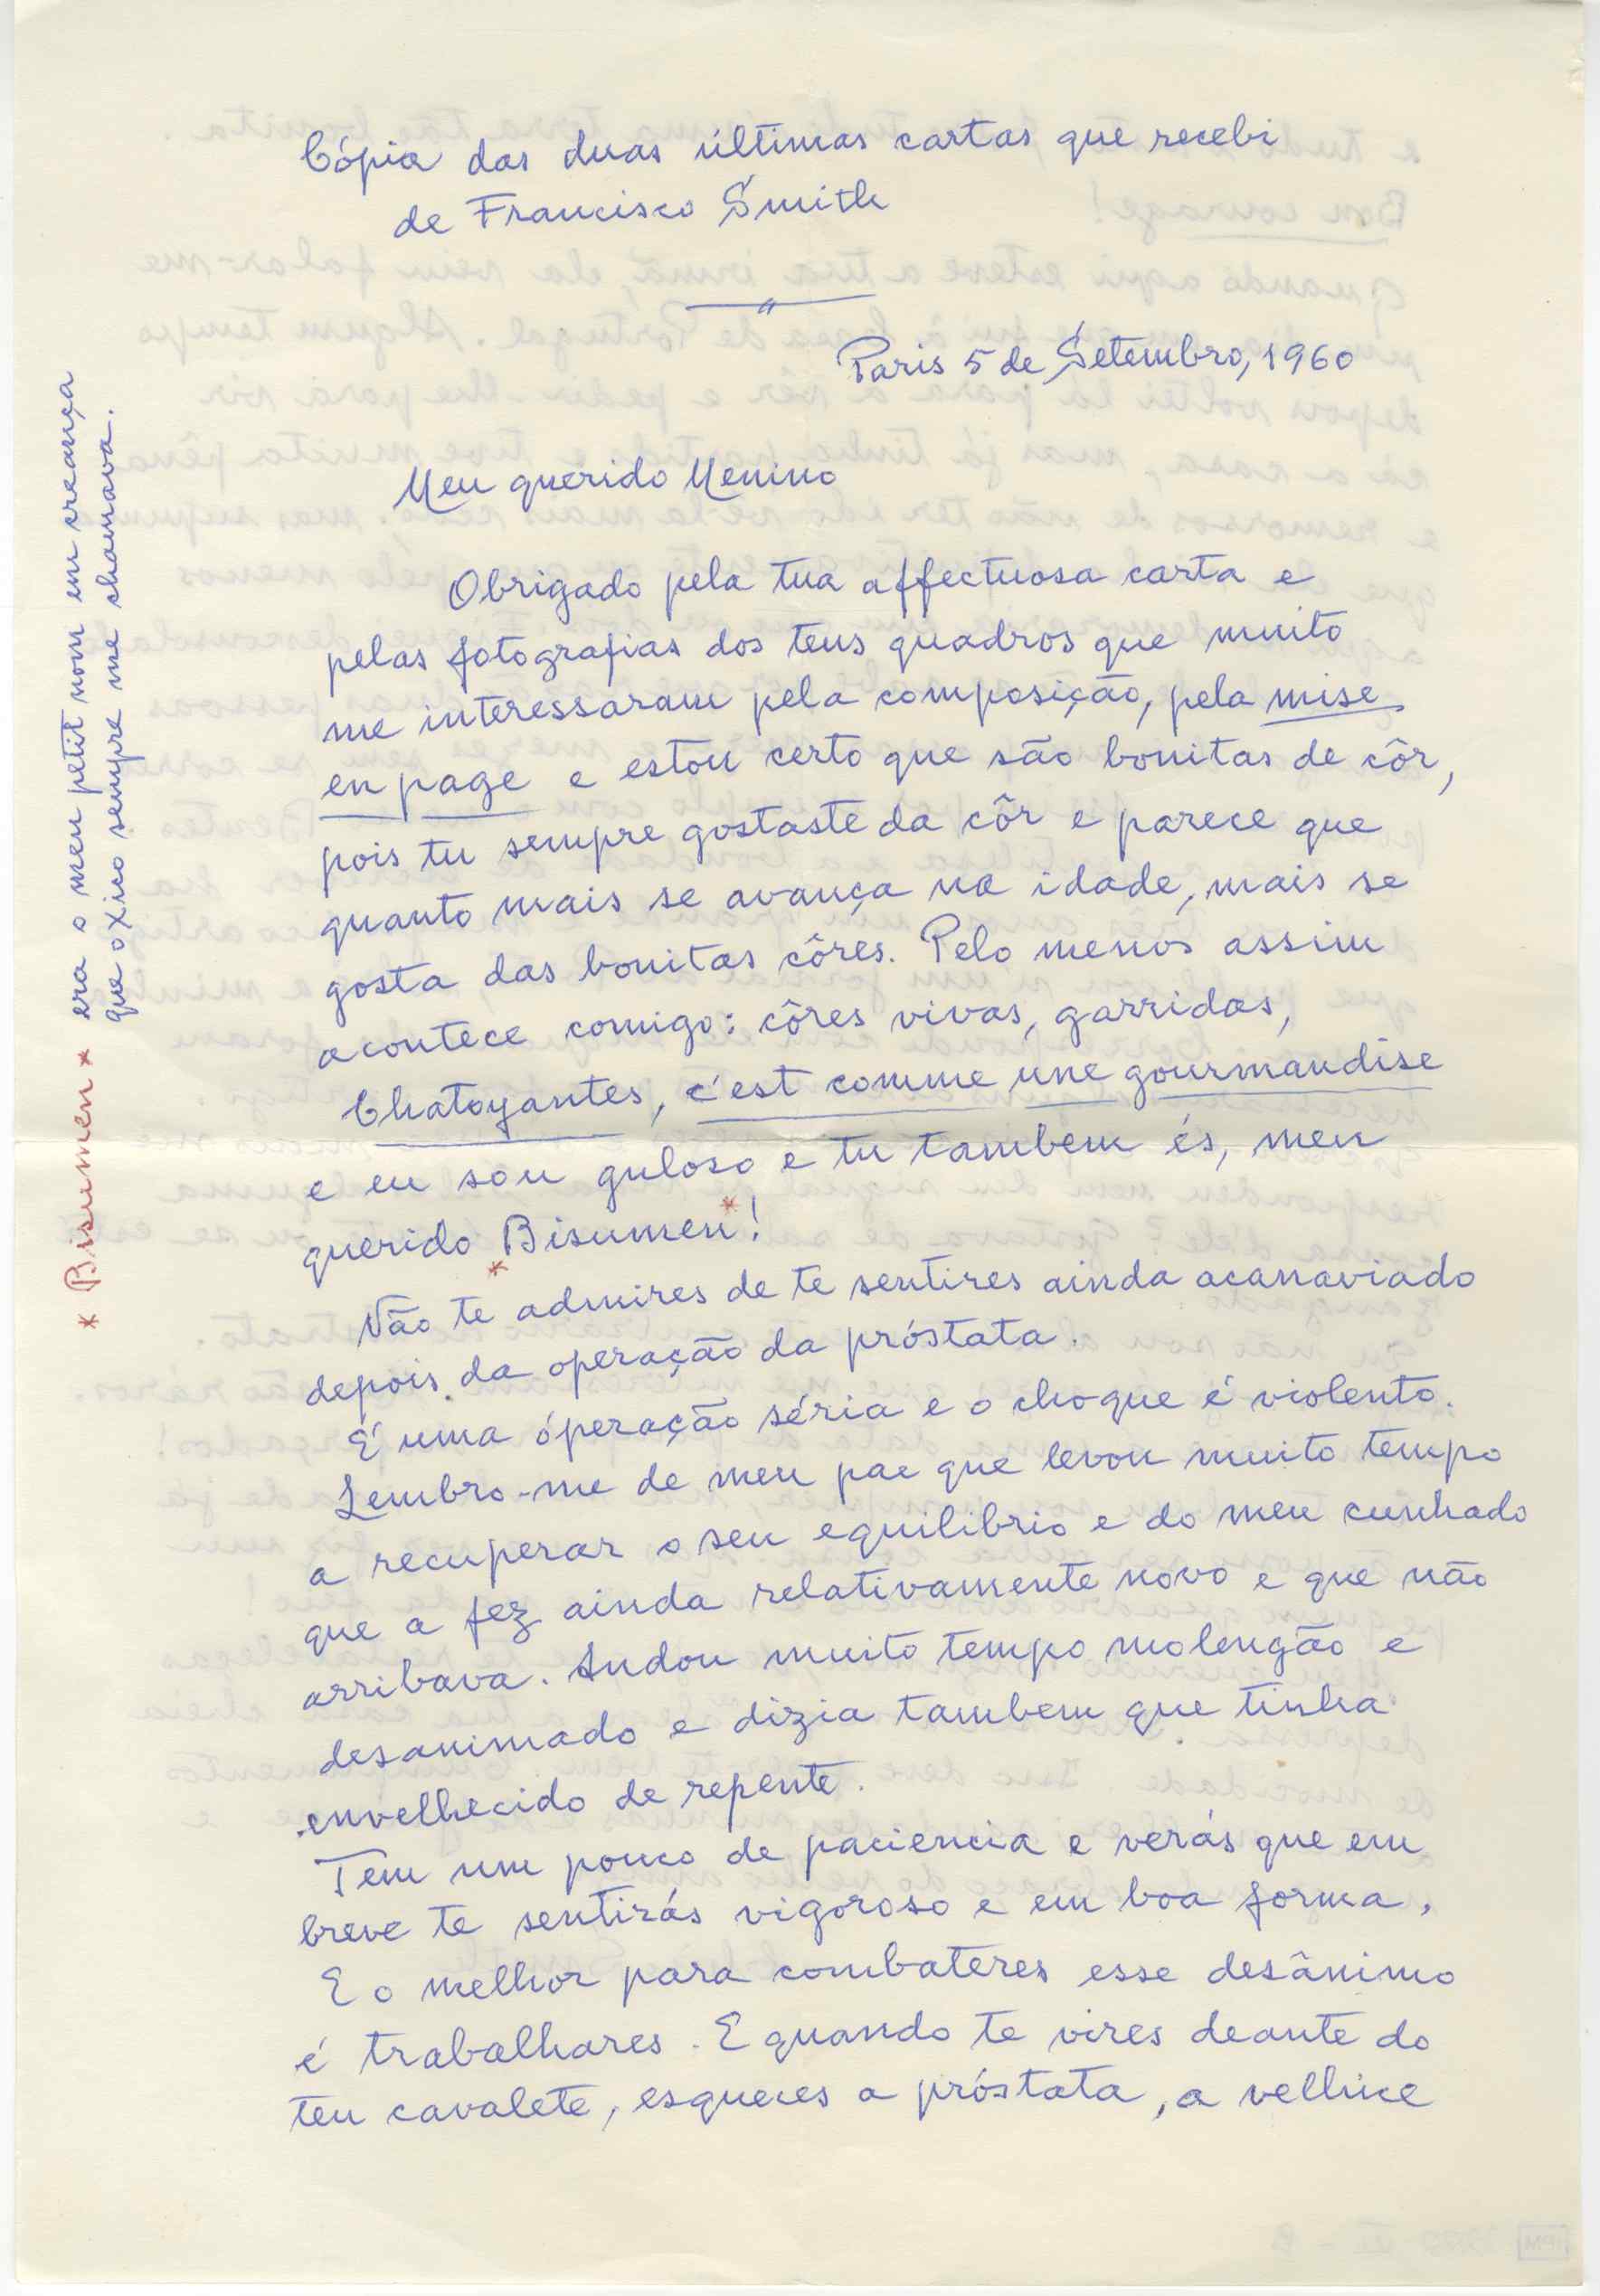 Cópia das duas últimas cartas que recebi
de Francisco Smith
Paris 5 de Setembro, 1960
Meu querido Menino
Obrigado pela tua affectuosa carta e
pelas fotografias dos teus quadros que muito
me interessaram pela composição, pela mise
en page e estou certo que são bonitas de côr,
pois tu sempre gostaste da côr e parece que
quanto mais se avança na idade, mais se
gosta das bonitas côres. Pelo menos assim
acontece comigo: côres vivas, garridas,
Chatoyantes, c'est comme une gourmandise
e eu sou guloso e tu tambem és, meu
querido *Bisumen*!
Não te admires de te sentires ainda acanaviado
depois da operação da próstata.
É uma óperação séria e o choque é violento.
Lembro-me de meu pae que levou muito tempo
a recuperar o seu equilibrio e do meu cunhado
que a fez ainda relativamente novo e que não
arribava. Andou muito tempo molengão e
desanimado e dizia tambem que tinha
envelhecido de repente.
Tem um pouco de paciencia e verás que em
breve te sentirás vigoroso e em boa forma.
E o melhor para combateres esse desânimo
é trabalhares. E quando te vires deante do
teu cavalete, esqueces a próstata, a velhice
* Bisumen * era o meu petit nom em creança
que o Xico sempre me chamava.